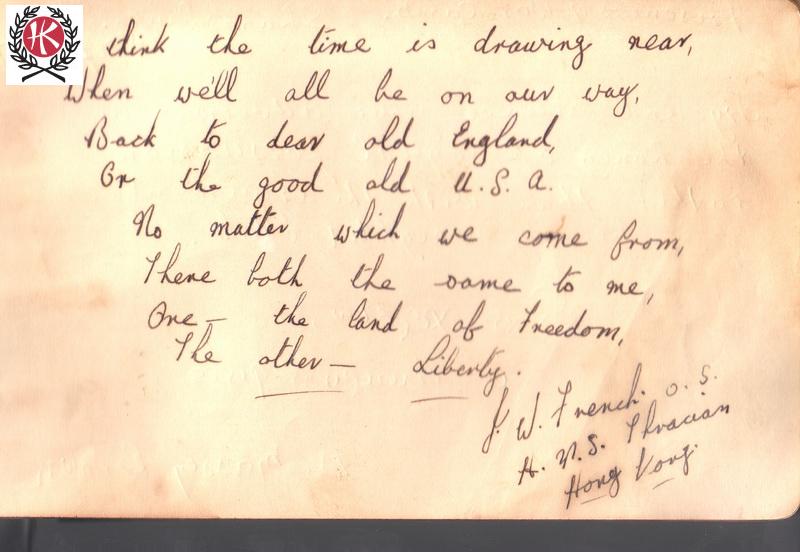 HK
think the time is drawing near,
When we'll all be on our way,
Back to dear old England,
Or the good old U.S.A.
No matter which we come from,
There both the same to me,
One - the land of Freedom,
The other - Liberty.
J. W. French. O.S.
H.M.S. Thracian
Hong Kong.